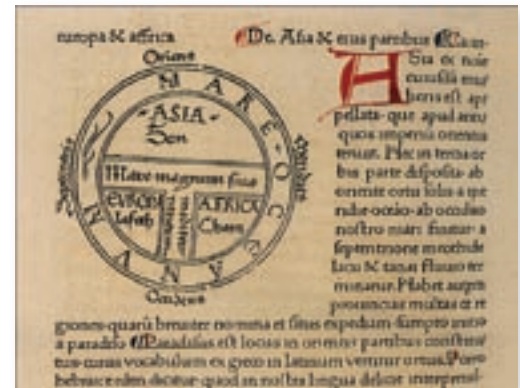 europa & affrica
De. Asia & eius partibus
Oriens
MARE OCEANUM
ASIA
Sem
Mare magnum siue
mediterraneum
EUROPA
Iafeth
AFRICA
Cham
Asia ex noie
cuiusdā mu
lieris est ap
pellata. que apud anti
quos imperiū orientis
tenuit. Hec in tercia or
bis parte disposita. ab
oriente ortu solis. a me
ridie. occeano. ab occiduo
nostro mari finitur. a
septemtrione meothide
lacu & tanai fluuio ter
minatur. Habet autem
prouincias multas et re
giones. quarū breuiter nomina et situs expediam. sumpto initio
a paradiso Paradisus est locus in orientis partibus constitu
tus. cuius vocabulum ex greco in latinum vertitur ortus. Porro
hebraice eden dicitur. quod in nostra lingua delicie interpretat